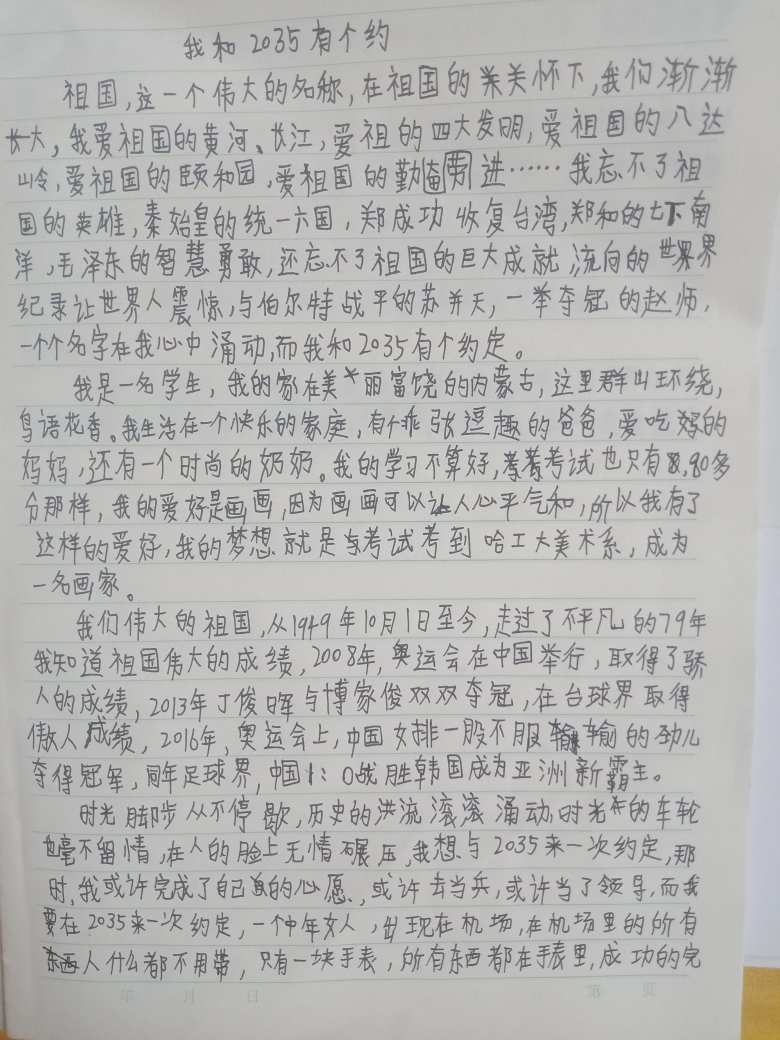 我和2035有个约
祖国,这一个伟大的名称,在祖国的关怀下,我们渐渐
长大,我爱祖国的黄河、长江,爱祖的四大发明,爱祖国的八达
岭,爱祖国的颐和园,爱祖国的勤劳进……我忘不了祖
国的英雄,秦始皇的统一六国,郑成功收复台湾,郑和的七下南
洋,毛泽东的智慧勇敢,还忘不了祖国的巨大成就,流向的世界
纪录让世界人震惊,与伯尔特战平的苏并天,一举夺冠的赵师,
一个个名字在我心中涌动,而我和2035有个约定。
我是一名学生,我的家在美丽富饶的内蒙古,这里群山环绕,
鸟语花香。我生活在一个快乐的家庭,有个乖张逗趣的爸爸,爱吃的
妈妈,还有一个时尚的奶奶。我的学习不算好,考试也只有8,90多
分那样,我的爱好是画画,因为画画可以让人心平气和,所以我有了
这样的爱好,我的梦想就是考试考到哈工大美术系,成为
一名画家。
我们伟大的祖国,从1949年10月1日至今,走过了不平凡的79年
我知道祖国伟大的成绩,2008年,奥运会在中国举行,取得了骄
人的成绩,2013年丁俊晖与博家俊双双夺冠,在台球界取得
傲人成绩,2016年,奥运会上,中国女排一股不服输的劲儿
夺得冠军,同年足球界,中国1:0战胜韩国成为亚洲新霸主。
时光脚步从不停歇,历史的洪流滚滚涌动,时光的车轮
毫不留情,在人的脸上无情碾压,我想与2035来一次约定,那
时,我或许完成了自己的心愿,或许去当兵,或许当了领导,而我
要在2035来一次约定,一个中年女人,出现在机场,在机场里的所有
人什么都不用带,只有一块手表,所有东西都在手表里,成功的完
年 月 日 第 页